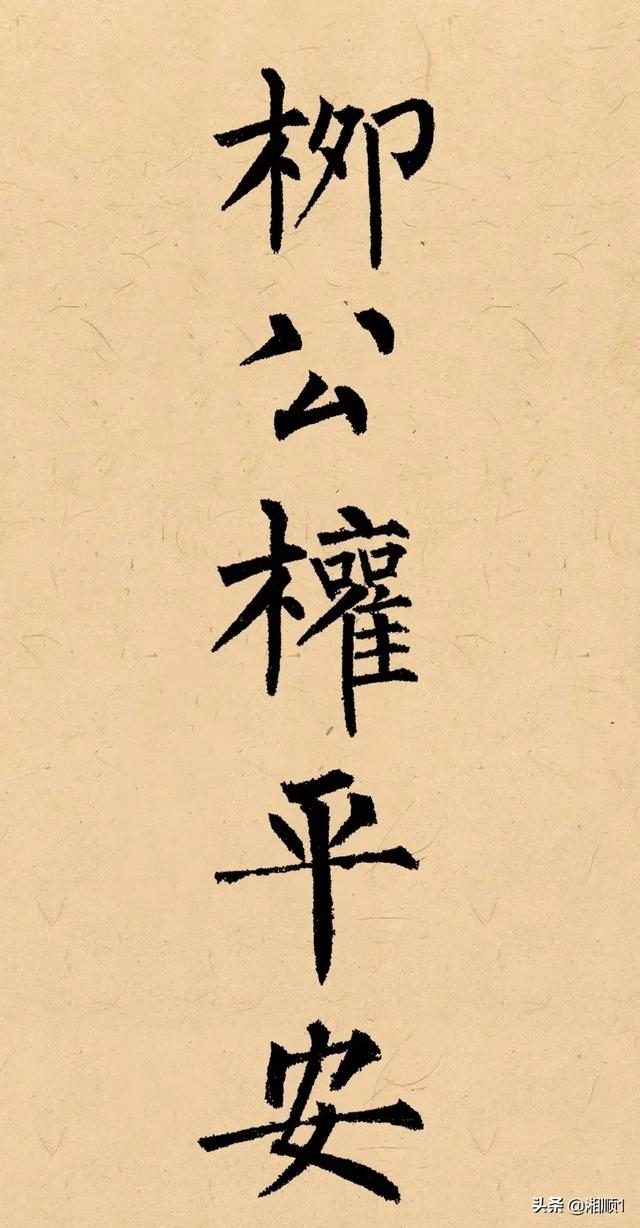 柳公權平安
头条 @湘顺1